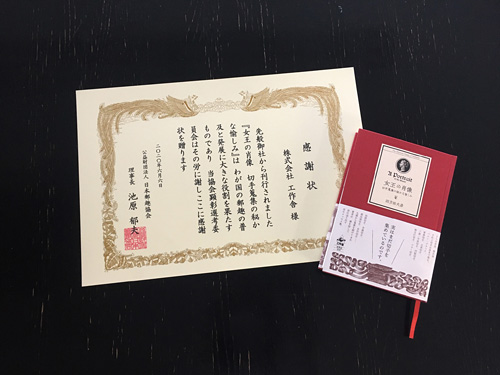 感謝状
株式会社 工作舎 様
先般御社から刊行されました
『女王の肖像 切手蒐集の秘か
な愉しみ』は わが国の郵趣の普
及と発展に大きな役割を果たす
ものであり 当協会顕彰選考委
員会はその労に謝しここに感謝
状を贈ります
二〇二〇年六月六日
公益財団法人 日本郵趣協会
理事長 池原郁夫
A Portrait
女王の肖像
切手蒐集の秘かな愉しみ
実はまだ切手を
集めているのです。